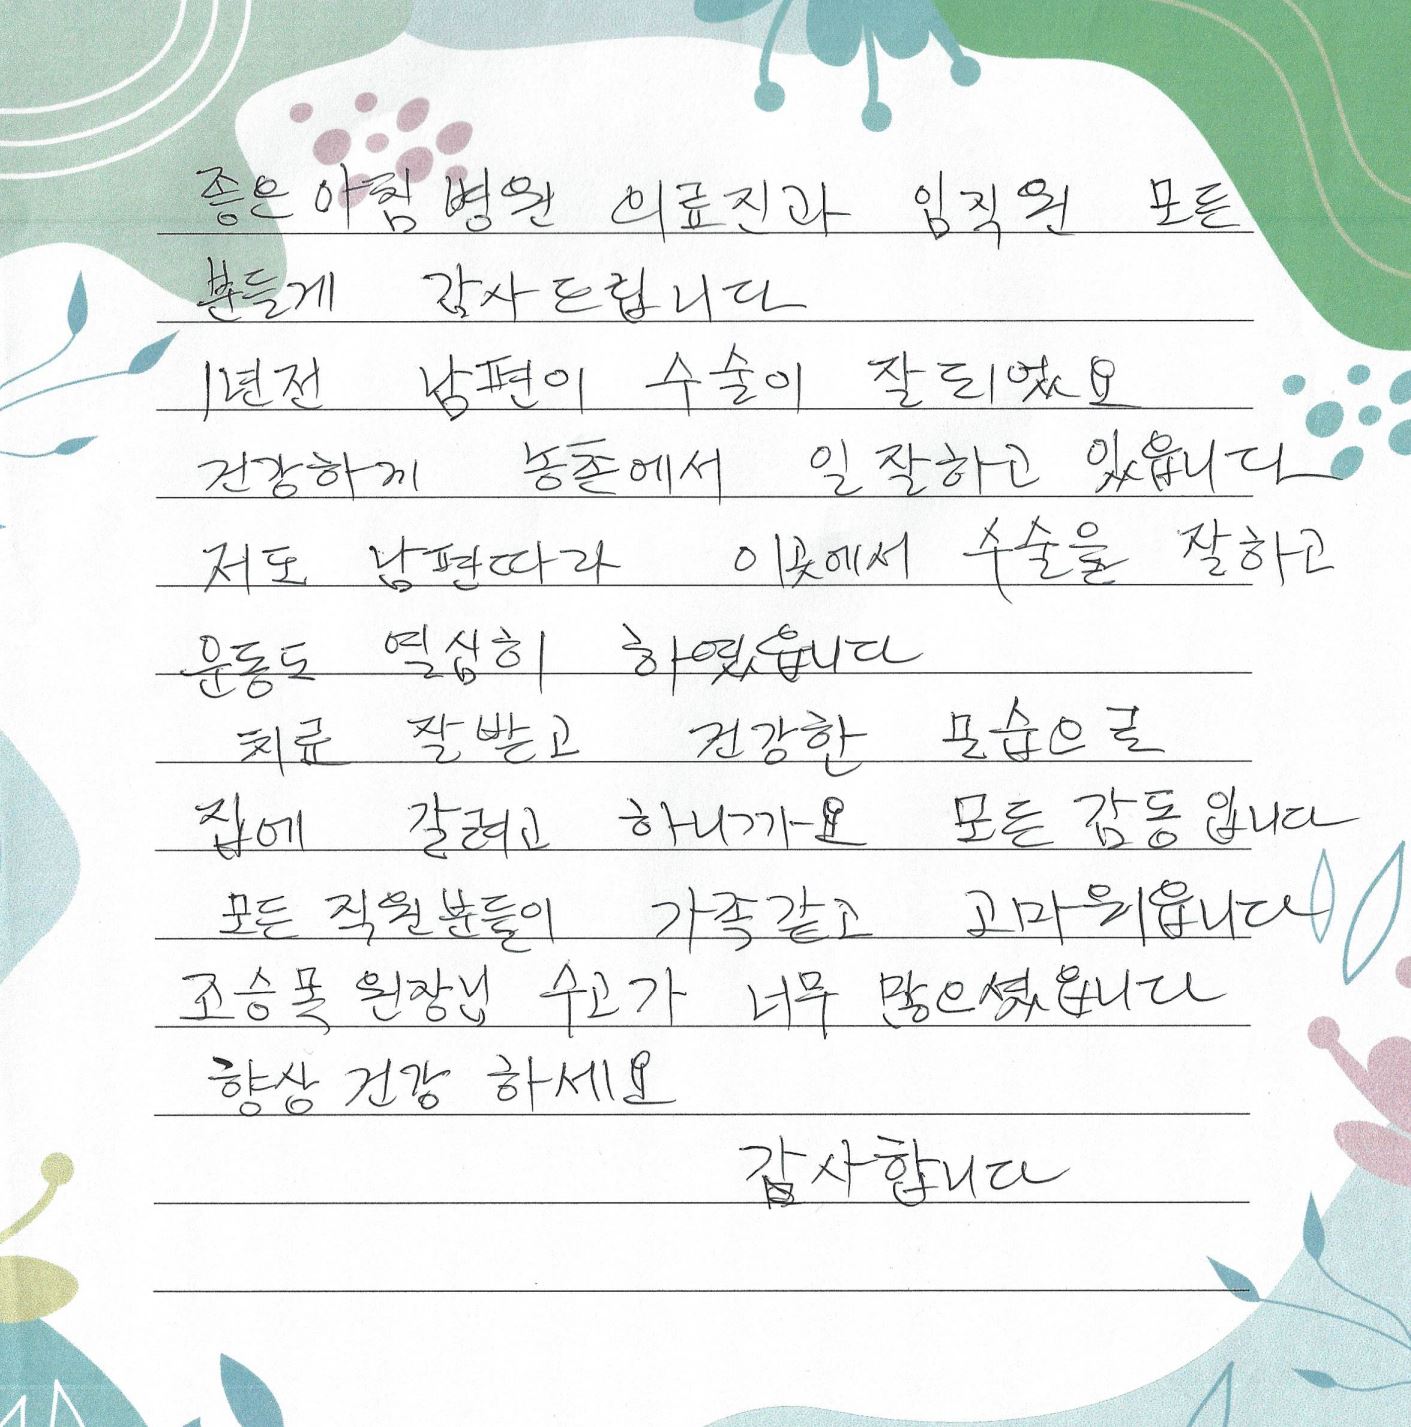 좋은아침병원 의료진과 임직원 모든
분들게 감사드립니다
1년전 남편이 수술이 잘되었요
건강하게 농촌에서 일잘하고 있읍니다
저도 남편따라 이곳에서 수술을 잘하고
운동도 열심히 하였읍니다
치료 잘받고 건강한 모습으로
집에 갈려고 하니까요 모든 감동입니다
모든 직원분들이 가족같고 고마워읍니다
조승묵 원장님 수고가 너무 많으셨읍니다
향상 건강 하세요
감사합니다